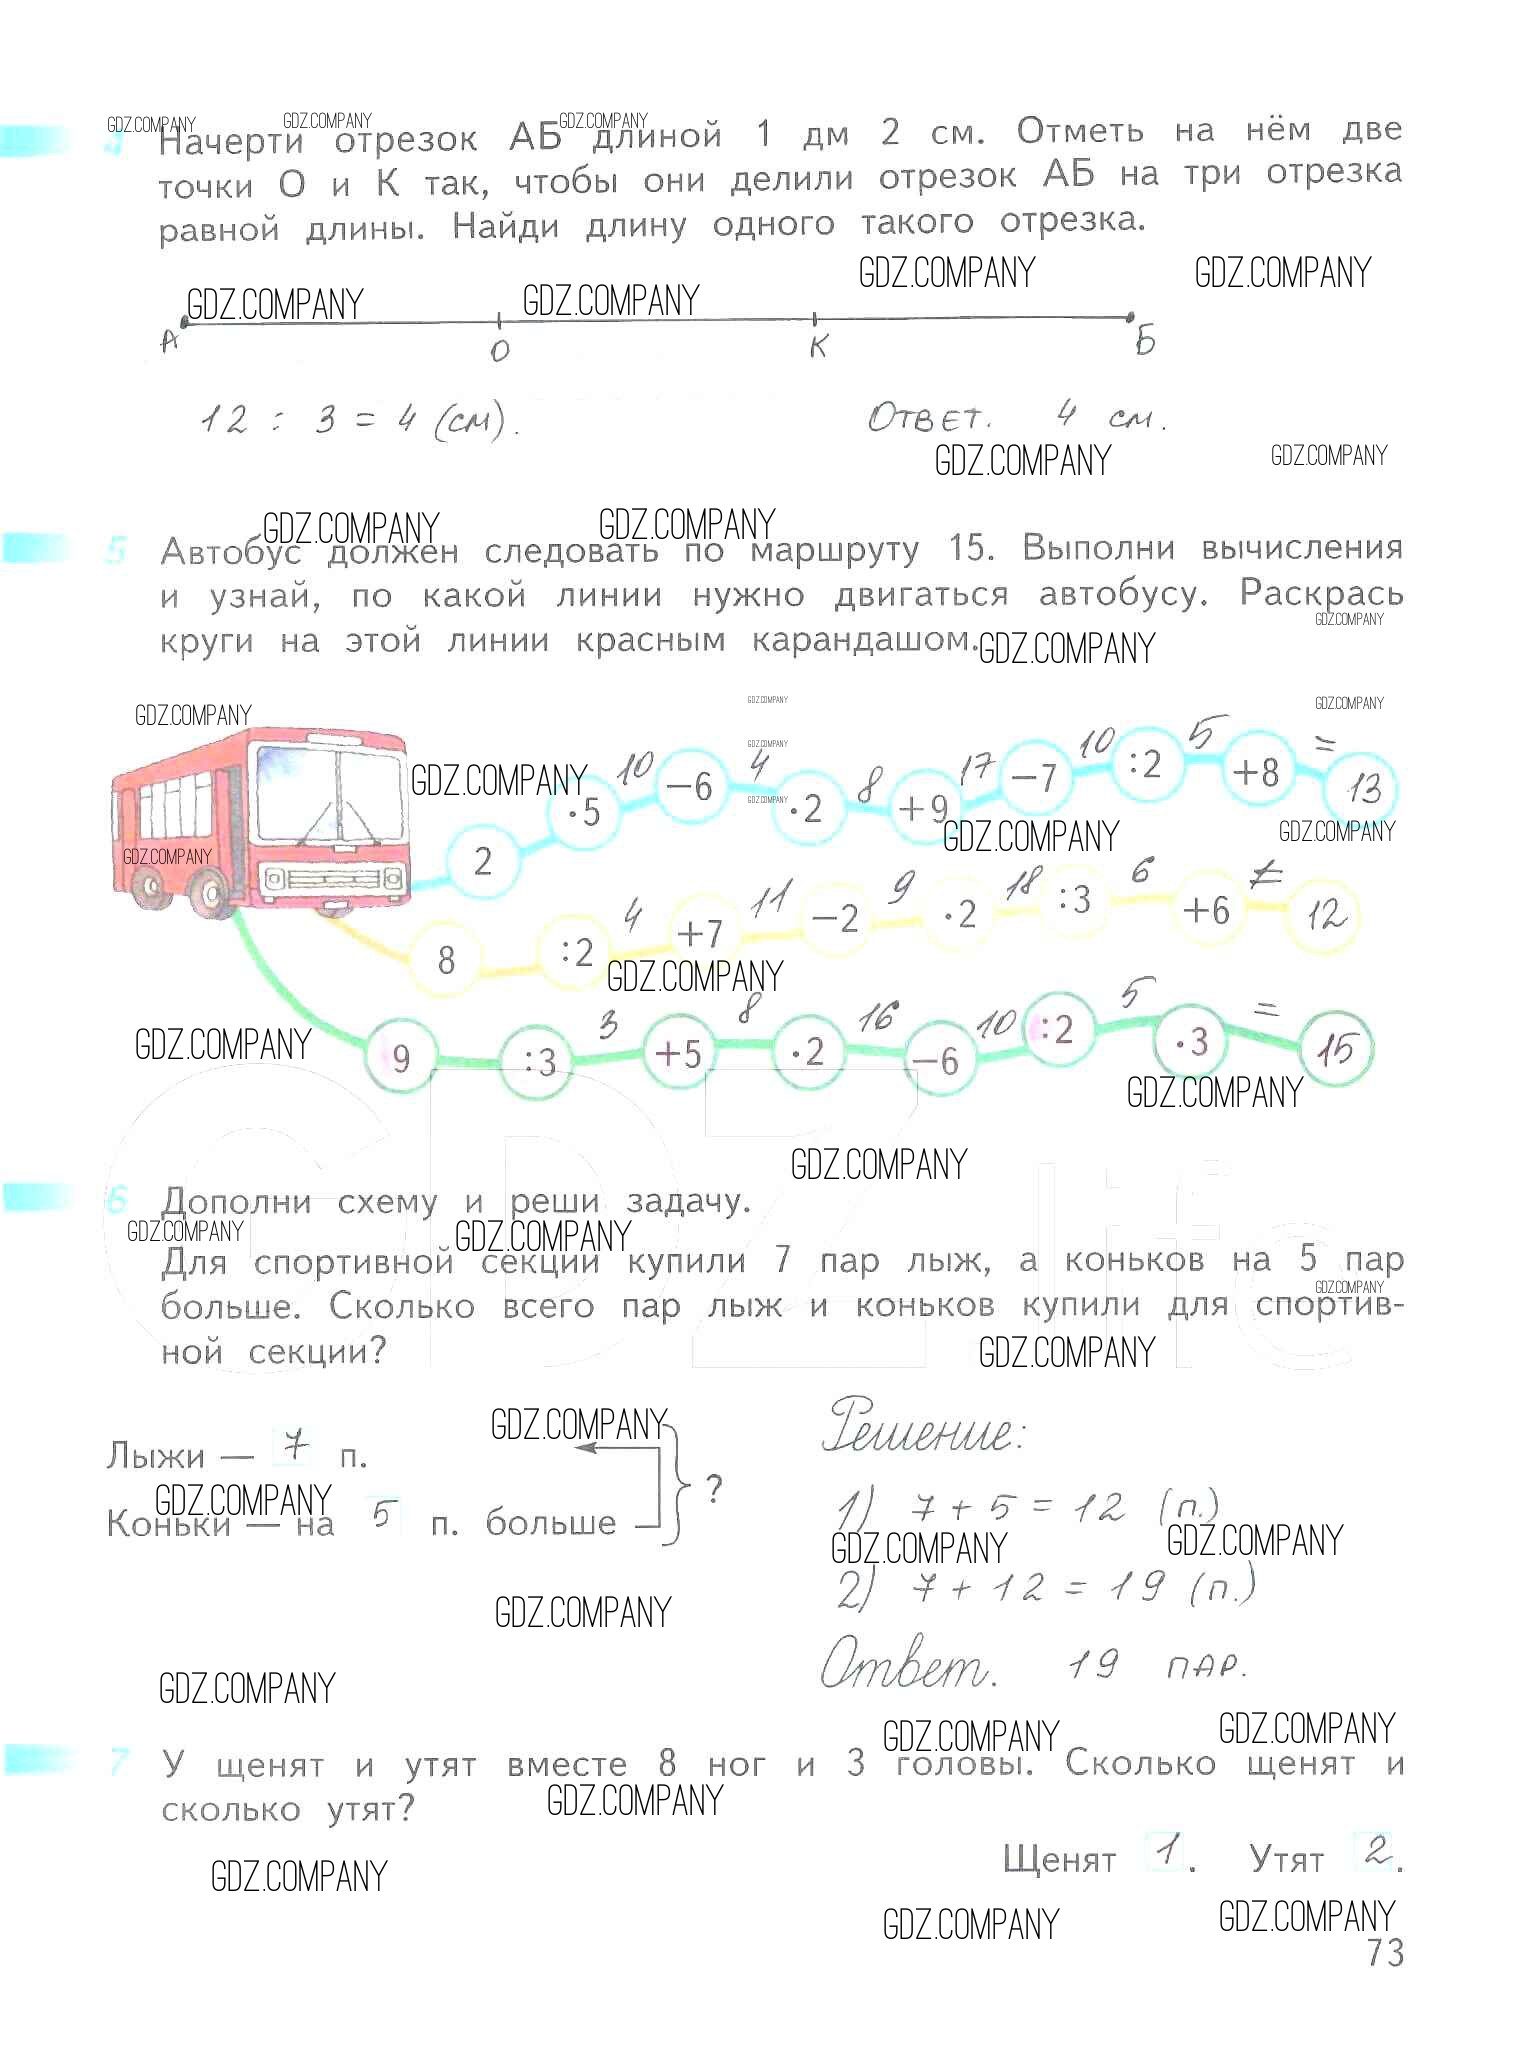 GDZ.COMPANY GDZ.COMPANY GDZ.COMPANY
4 Начерти отрезок АБ длиной 1 дм 2 см. Отметь на нём две
точки О и К так, чтобы они делили отрезок АБ на три отрезка
равной длины. Найди длину одного такого отрезка.
GDZ.COMPANY GDZ.COMPANY GDZ.COMPANY GDZ.COMPANY
А О К Б
12 : 3 = 4 (см). Ответ. 4 см.
GDZ.COMPANY GDZ.COMPANY
GDZ.COMPANY GDZ.COMPANY
5 Автобус должен следовать по маршруту 15. Выполни вычисления
и узнай, по какой линии нужно двигаться автобусу. Раскрась
GDZ.COMPANY
круги на этой линии красным карандашом.
GDZ.COMPANY
GDZ.COMPANY GDZ.COMPANY GDZ.COMPANY
GDZ.COMPANY
GDZ.COMPANY GDZ.COMPANY
2 ·5 10 −6 4 ·2 8 +9 17 −7 10 :2 5 +8 = 13
GDZ.COMPANY GDZ.COMPANY GDZ.COMPANY
8 :2 4 +7 11 −2 9 ·2 18 :3 6 +6 ≠ 12
GDZ.COMPANY
9 :3 3 +5 8 ·2 16 −6 10 :2 5 ·3 = 15
GDZ.COMPANY GDZ.COMPANY
GDZ.COMPANY
GDZ.life
6 Дополни схему и реши задачу.
GDZ.COMPANY GDZ.COMPANY
Для спортивной секции купили 7 пар лыж, а коньков на 5 пар
GDZ.COMPANY
больше. Сколько всего пар лыж и коньков купили для спортив-
ной секции?
GDZ.COMPANY
GDZ.COMPANY
Лыжи — 7 п.
GDZ.COMPANY
Коньки — на 5 п. больше
?
Решение:
1) 7 + 5 = 12 (п.)
GDZ.COMPANY GDZ.COMPANY
2) 7 + 12 = 19 (п.)
GDZ.COMPANY
Ответ. 19 пар.
GDZ.COMPANY
GDZ.COMPANY GDZ.COMPANY
7 У щенят и утят вместе 8 ног и 3 головы. Сколько щенят и
сколько утят?
GDZ.COMPANY
Щенят 1. Утят 2.
GDZ.COMPANY
GDZ.COMPANY GDZ.COMPANY
73